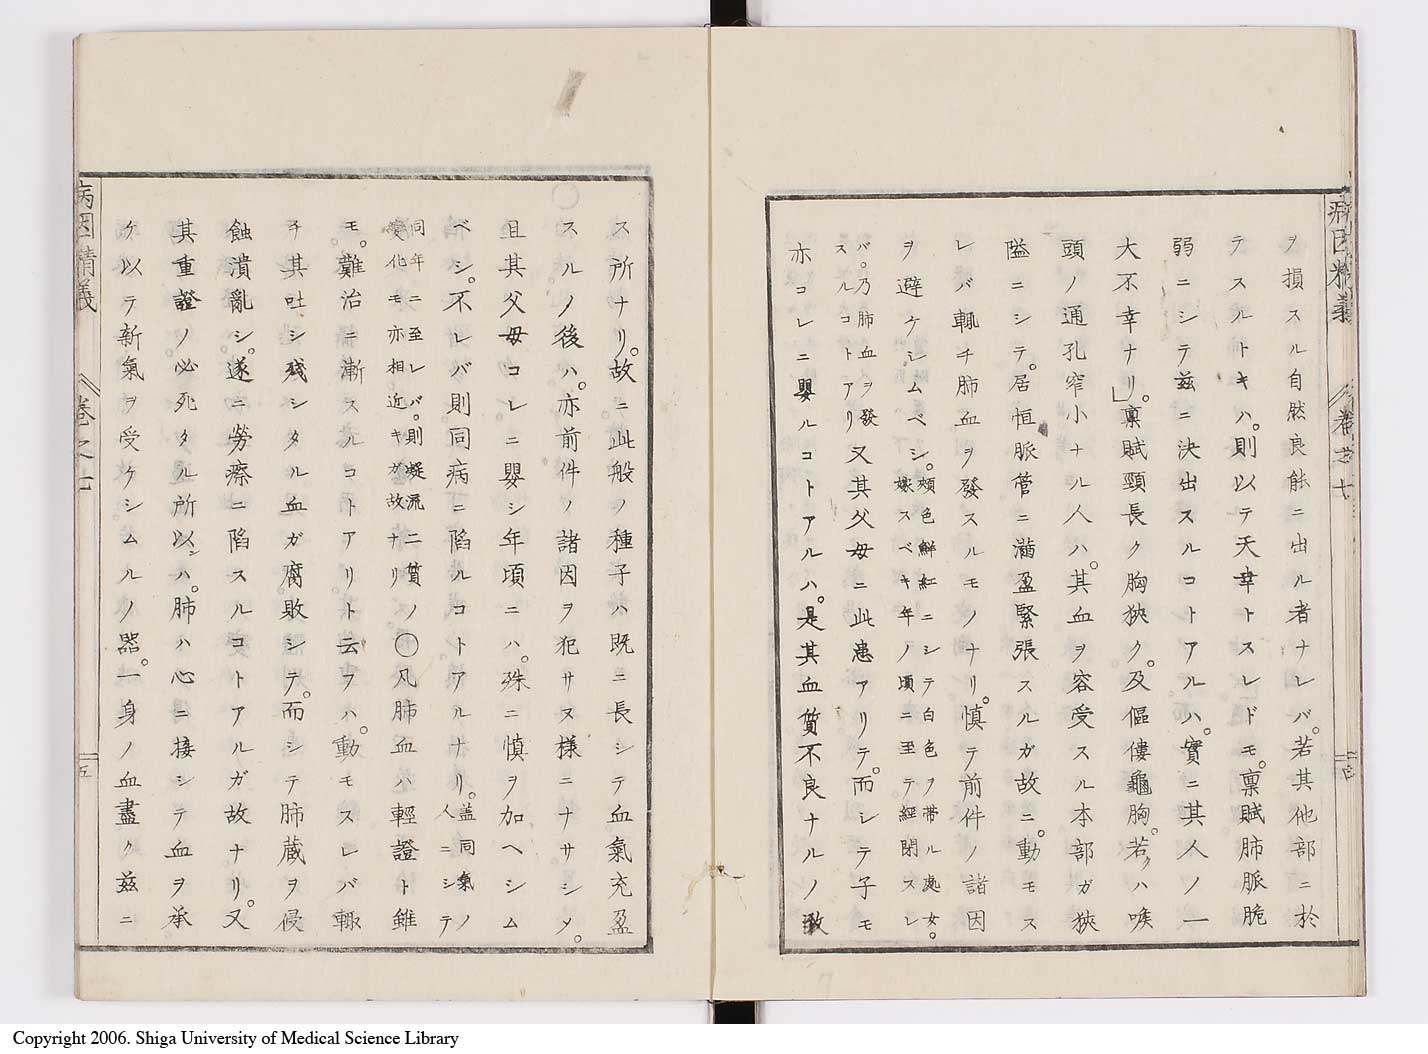 病因精義 卷之七 四
ヲ損スル自然良能ニ出ル者ナレバ。若其他部ニ於
テスルトキハ。則以テ天幸トスレドモ。禀賦肺脈脆
弱ニシテ茲ニ決出スルコトアルハ。實ニ其人ノ一
大不幸ナリ」。禀賦頸長ク胸狹ク。及傴僂龜胸。若クハ喉
頭ノ通孔窄小ナル人ハ。其血ヲ容受スル本部ガ狹
隘ニシテ。居恒脈管ニ滿盈緊張スルガ故ニ。動モス
レバ輒チ肺血ヲ發スルモノナリ。慎テ前件ノ諸因
ヲ避ケシムベシ。頰色鮮紅ニシテ白色ヲ帶ル處女。
嫁スベキ年ノ頃ニ至テ經閉スレ
バ。乃肺血ヲ發
スルコトアリ又其父母ニ此患アリテ。而シテ子モ
亦コレニ嬰ルコトアルハ。是其血質不良ナルノ致
ス所ナリ。故ニ此般ノ種子ハ既ニ長シテ血氣充盈
スルノ後ハ。亦前件ノ諸因ヲ犯サヌ樣ニナサシメ。
且其父母コレニ嬰シ年頃ニハ。殊ニ慎ヲ加ヘシム
ベシ。不レバ則同病ニ陷ルコトアルナリ。蓋同氣ノ
人ニシテ
同年ニ至レバ。則凝流二質ノ
變化モ亦相近キガ故ナリ○凡肺血ハ輕證ト雖
モ。難治ニ漸スルコトアリト云フハ。動モスレバ輒
チ其吐シ殘シタル血ガ腐敗シテ。而シテ肺藏ヲ侵
蝕潰亂シ。遂ニ勞瘵ニ陷スルコトアルガ故ナリ。又
其重證ノ必死タル所以ンハ。肺ハ心ニ接シテ血ヲ承
ケ以テ新氣ヲ受ケシムルノ器。一身ノ血盡ク茲ニ
病因精義 卷之七 五
Copyright 2006. Shiga University of Medical Science Library